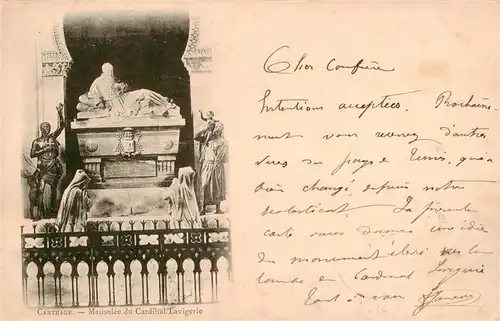 Cher Confrère
Intentions acceptées. Prochaine
ment vous recevrez d'autres
vues du pays de Tunis, qui a
bien changé depuis notre
scolasticat. La présente
carte vous donne une idée
du monument élevé sur la
tombe du Cardinal Lavigerie
Tout à vous
CARTHAGE. — Mausolée du Cardinal Lavigerie